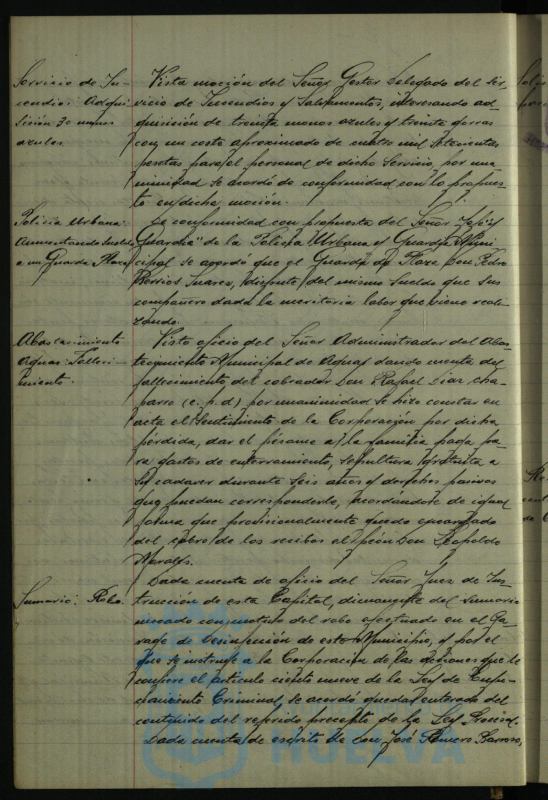 Servicio de In-
cendios: Adqui
sición 30 monos
azules.
Vista moción del Señor Gestor Delegado del Ser-
vicio de Incendios y Salvamentos, interesando ad-
quisición de treinta monos azules y treinta gorras
con un coste aproximado de cuatro mil setecientas
pesetas para el personal de dicho Servicio, por una
nimidad se acordó de conformidad con lo propues-
to en dicha moción.
Policia Urbana:
Aumentando Sueldo
a un Guarda Plaza
De conformidad con propuesta del Señor Jefe
Guardia de la Policía Urbana y Guardia Muni-
cipal se acordó que el Guarda de Plaza Don Pedro
Berrios Suarez, disfrute del mismo sueldo que sus
compañeros dada la meritoria labor que viene reali-
zando.
Abastecimiento
Aguas: Falleci-
miento.
Visto oficio del Señor Administrador del Abas-
tecimiento Municipal de Aguas dando cuenta del
fallecimiento del cobrador Don Rafael Diaz Cha-
parro (e.p.d.) por unanimidad se hizo constar en
acta el sentimiento de la Corporación por dicha
pérdida, dar el pésame a la familia paga pa-
ra gastos de enterramiento, sepultura gratuita a
su cadaver durante seis años y derechos pasivos
que puedan corresponderle, acordándose de igual
forma que provisionalmente quede encargado
del cobro de los recibos el peón Don Leopoldo
Sumario: Robo.
Dada cuenta de oficio del Señor Juez de Ins-
trucción de esta Capital, dimanante del Sumario
incoado con motivo del robo efectuado en el Ga-
rage de Desinfección de este Municipio, y por el
que se instruye a la Corporación de las acciones que le
confiere el artículo ciento nueve de la Ley de Enjui-
ciamiento Criminal, se acordó quedar enterado del
contenido del referido precepto de la Ley Procesal.
Dada cuenta de escrito de Don José Romero Barroso,
HUELVA